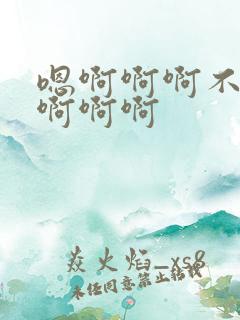 嗯啊啊啊不
啊啊啊
焱火焰_xs8
未经同意禁止转载